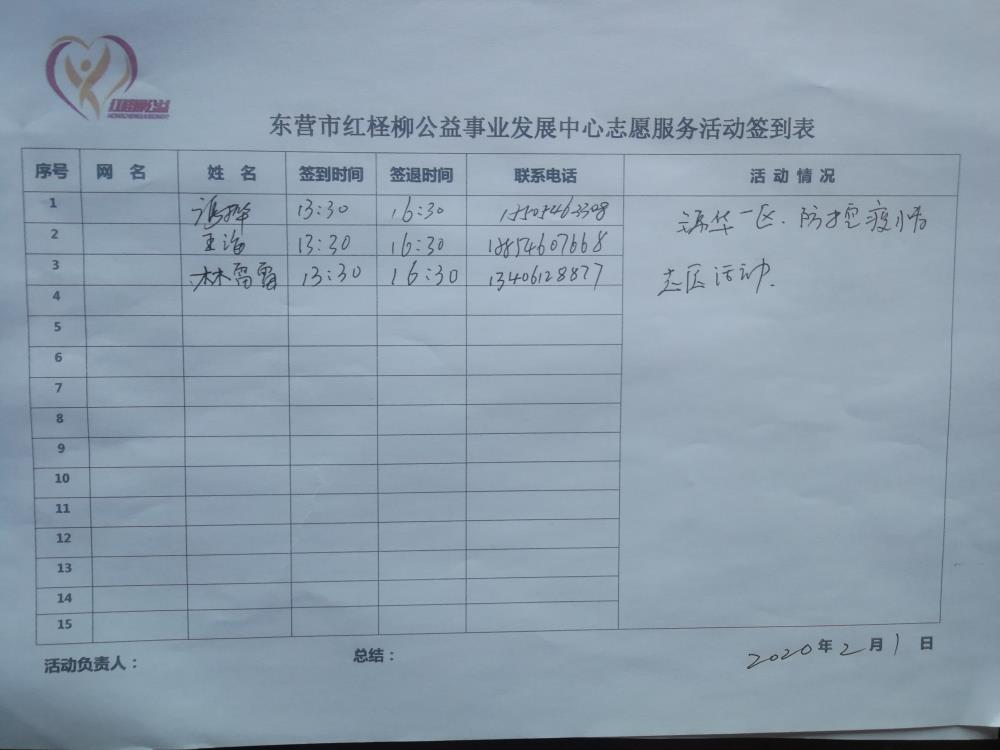 红柽柳公益
东营市红柽柳公益事业发展中心志愿服务活动签到表
序号 网 名 姓 名 签到时间 签退时间 联系电话 活 动 情 况
1 13:30 16:30 一区.防控疫情
2 王治 13:30 16:30 18854607668
3 林雷雷 13:30 16:30 13406128877 志区活动.
4
5
6
7
8
9
10
11
12
13
14
15
活动负责人：
总结：
2020年2月1日